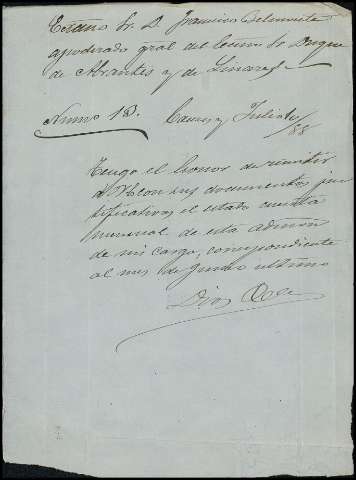 Excmo Sr. D. Francisco Belmonte
apoderado gral del Excmo Sr Duque
de Abrantes y de Linares
Numo 13. Julio 1º/88
Tengo el honor de remitir
á V. con sus documentos jus
tificativos el estado cuenta
mensual de esta admón
de mi cargo, correspondiente
al mes de Junio último
Dios